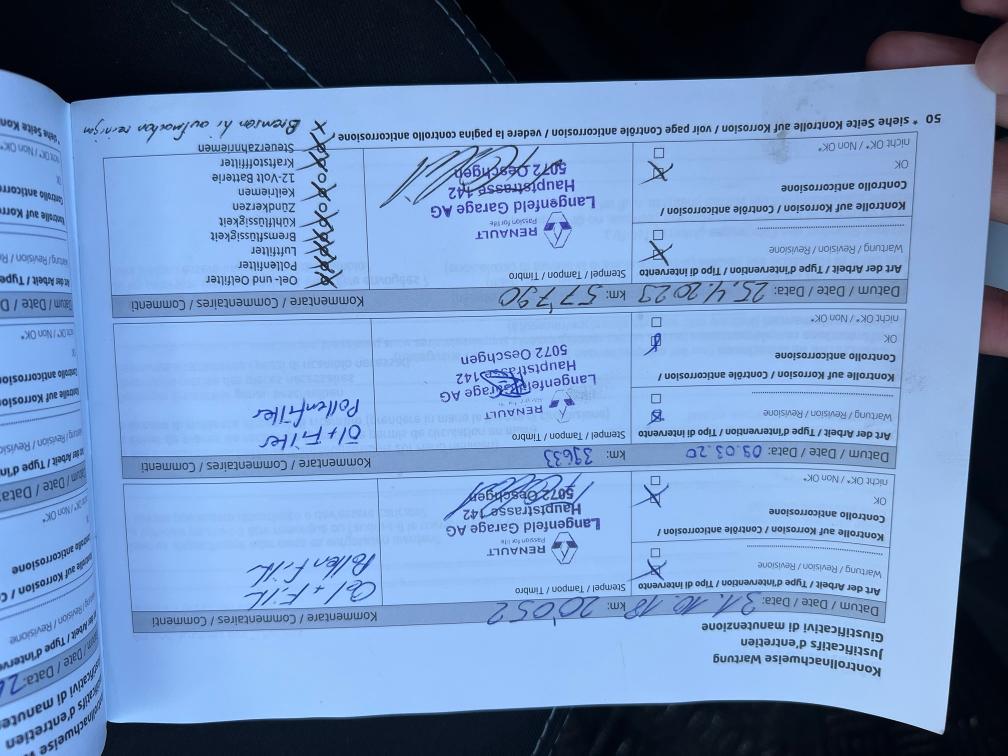 Kontrollnachweise Wartung
Justificatifs d'entretien
Giustificativi di manutenzione
Datum / Date / Data: 31.10.18 km: 20'052 Kommentare / Commentaires / Commenti
Art der Arbeit / Type d'intervention / Tipo di intervento
Wartung / Revision / Revisione
Stempel / Tampon / Timbro
RENAULT
Passion for life
Langenfeld Garage AG
Hauptstrasse 142
5072 Oeschgen
Kontrolle auf Korrosion / Contrôle anticorrosion /
Controllo anticorrosione
OK
nicht OK* / Non OK*
Oel + Filt.
Pollen Filt.
Datum / Date / Data: 09.03.20 km: 39633 Kommentare / Commentaires / Commenti
Art der Arbeit / Type d'intervention / Tipo di intervento
Wartung / Revision / Revisione
Stempel / Tampon / Timbro
RENAULT
Langenfeld Garage AG
Hauptstrasse 142
5072 Oeschgen
Kontrolle auf Korrosion / Contrôle anticorrosion /
Controllo anticorrosione
OK
nicht OK* / Non OK*
Öl + Filter
Pollenfilter
Datum / Date / Data: 25.4.2023 km: 57'790 Kommentare / Commentaires / Commenti
Art der Arbeit / Type d'intervention / Tipo di intervento
Wartung / Revision / Revisione
Stempel / Tampon / Timbro
RENAULT
Passion for life
Langenfeld Garage AG
Hauptstrasse 142
5072 Oeschgen
Kontrolle auf Korrosion / Contrôle anticorrosion /
Controllo anticorrosione
OK
nicht OK* / Non OK*
Oel- und Oelfilter
Pollenfilter
Luftfilter
Bremsflüssigkeit
Kühlflüssigkeit
Zündkerzen
Keilriemen
12-Volt Batterie
Kraftstofffilter
Steuerzahnriemen
Bremsen hi aufmachen reinigen
50 * siehe Seite Kontrolle auf Korrosion / voir page Contrôle anticorrosion / vedere la pagina controllo anticorrosione